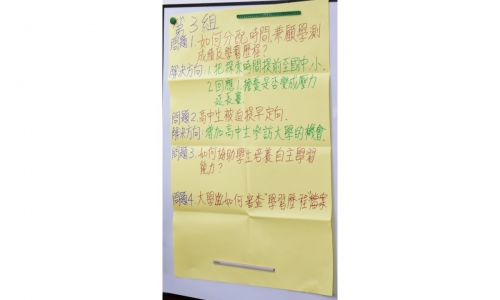 第3組
問題1.如何分配時間,兼顧學測
成績及學習歷程?
解決方向:1.把探索時間提前至國中、小.
2.回應1:擔憂是否變成壓力
延長賽
問題2.高中生被迫提早定向.
解決方向:增加高中生參訪大學的機會.
問題3.如何協助學生培養自主學習
能力?
問題4.大學端如何審查"學習歷程"檔案